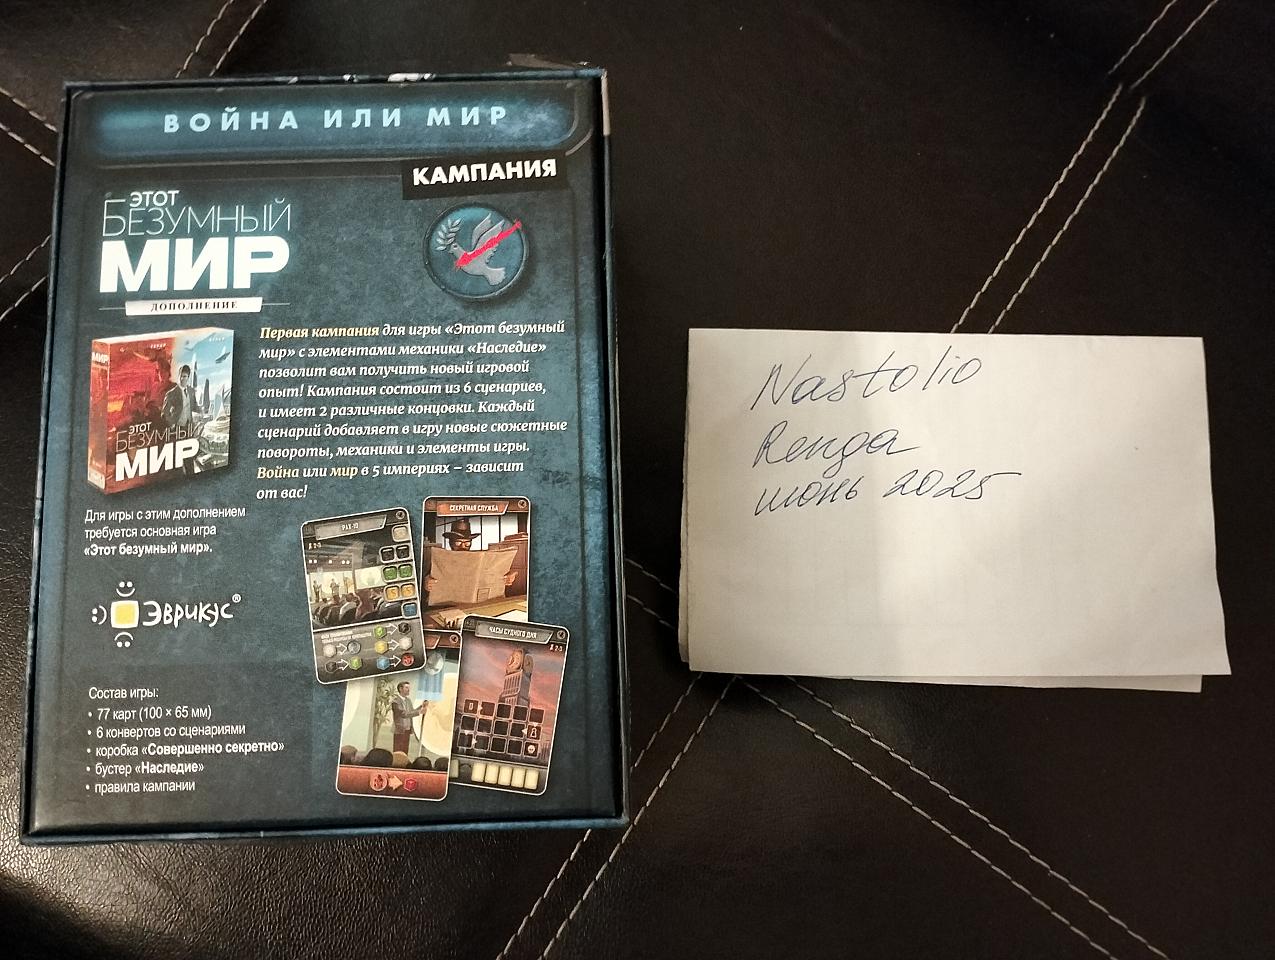 ВОЙНА ИЛИ МИР
КАМПАНИЯ
ЭТОТ
БЕЗУМНЫЙ
МИР
ДОПОЛНЕНИЕ
Первая кампания для игры «Этот безумный
мир» с элементами механики «Наследие»
позволит вам получить новый игровой
опыт! Кампания состоит из 6 сценариев,
и имеет 2 различные концовки. Каждый
сценарий добавляет в игру новые сюжетные
повороты, механики и элементы игры.
Война или мир в 5 империях – зависит
от вас!
МИР
ЭТОТ
БЕЗУМНЫЙ
МИР
Для игры с этим дополнением
требуется основная игра
«Этот безумный мир».
Эврикус®
СЕКРЕТНАЯ СЛУЖБА
ЧАСЫ СУДНОГО ДНЯ
Состав игры:
• 77 карт (100 × 65 мм)
• 6 конвертов со сценариями
• коробка «Совершенно секретно»
• бустер «Наследие»
• правила кампании
Nastolio
Renga
июнь 2025